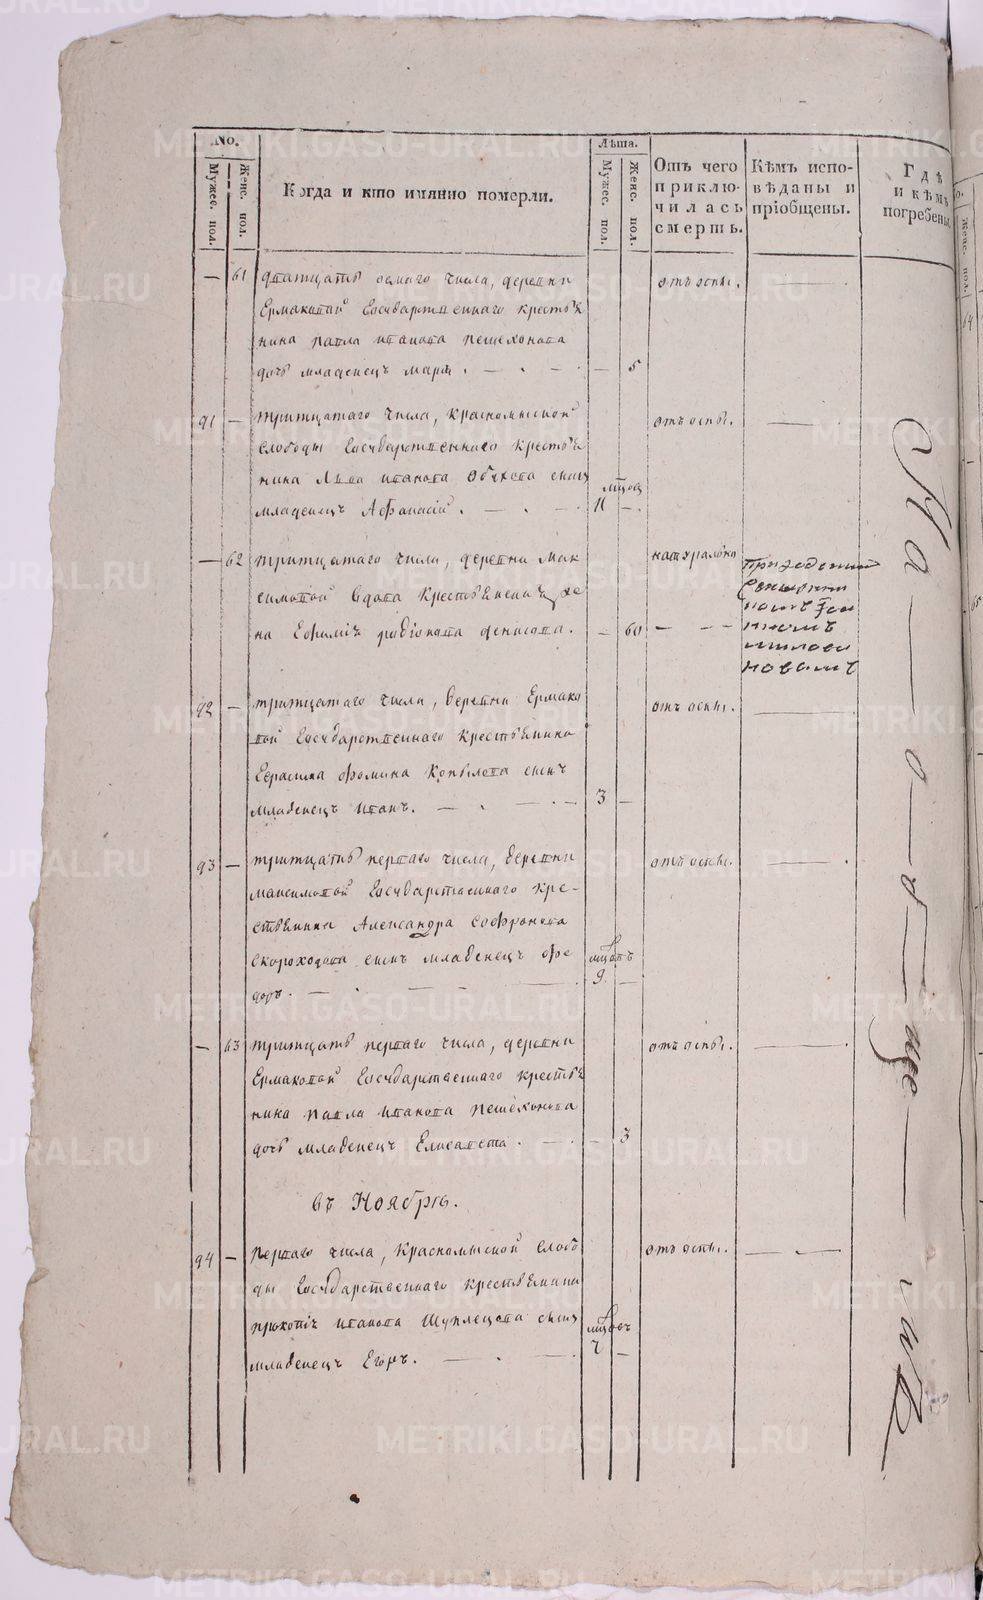 No.
Мужес. пол.
Женс. пол.
Когда и кто имянно померли.
Лѣта.
Мужес. пол.
Женс. пол.
Отъ чего
приклю-
чилась
смерть.
Кѣмъ испо-
вѣданы и
пріобщены.
Гдѣ
и кѣмъ
погребены
— 61 дватцать осмаго числа, деревни
Ермаковой Государственнаго крестья
нина Павла Иванова Пешехонова
дочь младенецъ Марія. — 5
отъ оспы.
91 — тритцатаго числа, Красномысской
слободы Государственнаго крестья
нина Льва Иванова Обухова сынъ
младенецъ Афанасій.
мѣсяц
11 —
отъ оспы.
— 62 тритцатаго числа, деревни Мак
симовой вдова крестьянская же
на Ефимія Родіонова Денисова. — 60
натурално
Приходскимъ
Священни
комъ
92 — тритцатаго числа, деревни Ермако
вой Государственнаго крестьянина
Герасима Фомина Копылова сынъ
младенецъ Иванъ. 3 —
отъ оспы.
93 — тритцать перваго числа, деревни
Максимовой Государственнаго кре-
стьянина Александра Софронова
Скороходова сынъ младенецъ Фе
доръ. 9. —
отъ оспы.
— 63 тритцать перваго числа, деревни
Ермаковой Государственнаго крестья
нина Павла Иванова Пешехонова
дочь младенецъ Елисавета. — 3
отъ оспы.
въ Ноябрѣ.
94 — перваго числа, Красномысской слобо
ды Государственнаго крестьянина
Прокопія Иванова Шуплецова сынъ
младенецъ Егоръ.
отъ оспы.
METRIKI.GASO-URAL.RU